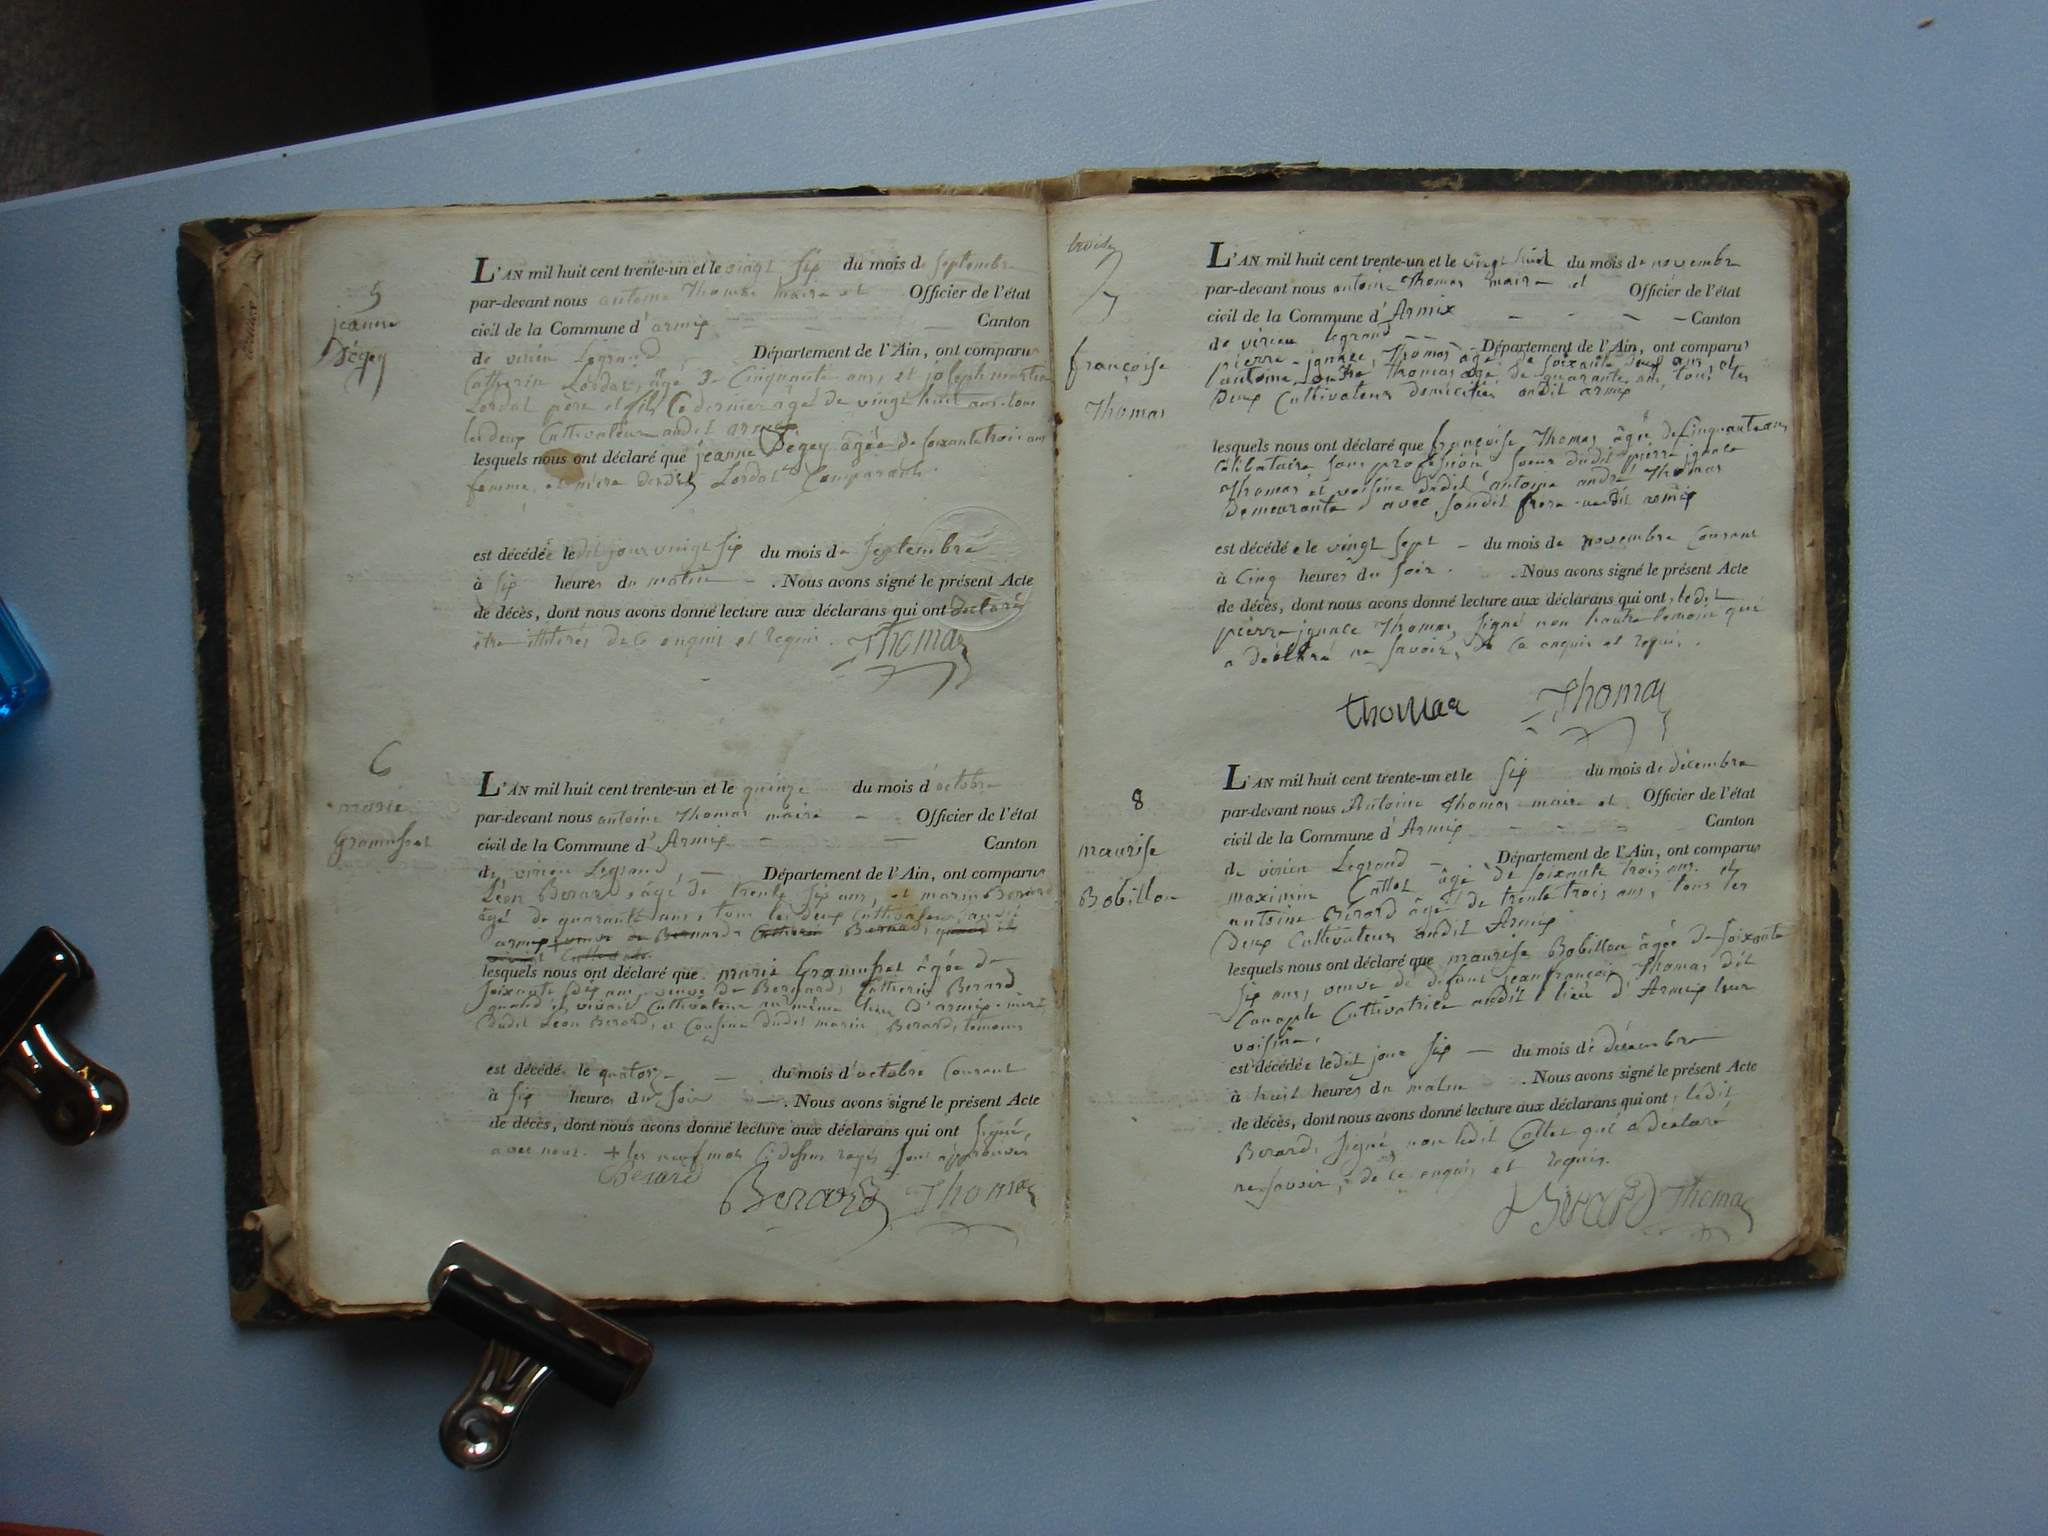 5
jeanne
Dégey
L'AN mil huit cent trente-un et le vingt six du mois de septembre
par-devant nous antoine Thomas maire et Officier de l'état
civil de la Commune d'armix Canton
de virieu Legrand Département de l'Ain, ont comparu
Catherin Lordat, âgé de Cinquante ans, et joseph martin
Lordat père et fils Ce dernier âgé de vingt huit ans tous
les deux Cultivateurs audit armix
lesquels nous ont déclaré que jeanne Dégey âgée de soixante trois ans
femme, et mère desdits Lordat Comparants.
est décédée ledit jour vingt six du mois de Septembre
à six heures du matin. Nous avons signé le présent Acte
de décès, dont nous avons donné lecture aux déclarans qui ont declaré
être illitérés de ce enquis et requis. Thomas
6
marie
Gramusset
L'AN mil huit cent trente-un et le quinze du mois d'octobre
par-devant nous antoine Thomas maire Officier de l'état
civil de la Commune d'Armix Canton
de virieu Legrand, Département de l'Ain, ont comparu
Léon Berard, âgé de trente six ans, et marin Berard
âgé de quarante ans, tous les deux Cultivateurs, audit
armix + veuve de Bernard Catherin Bernard, quand il
vivait Cultivat.
lesquels nous ont déclaré que marie Gramusset âgée de
soixante dix ans veuve de Bernard, Catherin Berard
quand il vivait Cultivateur au même lieu d'armix mère
dudit Léon Berard, et Cousine dudit marin Berard, temoins
est décédée le quatorze du mois d'octobre Courant
à six heures du soir. Nous avons signé le présent Acte
de décès, dont nous avons donné lecture aux déclarans qui ont signé,
avec nous. + les neuf mots Cidessus rayés sont approuvés
Berard
Berard Thomas
7
françoise
Thomas
L'AN mil huit cent trente-un et le vingt huit du mois de novembre
par-devant nous antoine Thomas maire et Officier de l'état
civil de la Commune d'Armix Canton
de virieu legrand Département de l'Ain, ont comparu
pierre-ignace Thomas âgé de soixante deux ans, et
antoine andré Thomas âgé de quarante ans, tous les
deux Cultivateurs domiciliés audit armix
lesquels nous ont déclaré que françoise Thomas âgée de Cinquante ans
célibataire sans profession soeur dudit pierre ignace
Thomas et voisine dudit antoine andré Thomas
Demeurante avec sondit frere audit armix
est décédée le vingt sept du mois de novembre Courant
à Cinq heures du soir. Nous avons signé le présent Acte
de décès, dont nous avons donné lecture aux déclarans qui ont, ledit
pierre ignace Thomas, signé non l'autre temoin qui
a déclaré ne savoir, de ce enquis et requis.
thomas Thomas
8
maurise
Bobillon
L'AN mil huit cent trente-un et le six du mois de décembre
par-devant nous Antoine Thomas maire et Officier de l'état
civil de la Commune d'Armix Canton
de virieu Legrand Département de l'Ain, ont comparu
maximin Cattot âgé de soixante trois ans et
antoine Bérard âgé de trente trois ans, tous les
deux Cultivateurs audit Armix
lesquels nous ont déclaré que maurise Bobillon âgée de soixante
six ans, veuve de défunt jean françois Thomas dit
Canaple Cultivatrice audit lieu d'Armix leur
voisine.
est décédée ledit jour six du mois de décembre
à huit heures du matin. Nous avons signé le présent Acte
de décès, dont nous avons donné lecture aux déclarans qui ont, ledit
Berard, signé non ledit Cattot qui a déclaré
ne savoir, de ce enquis et requis.
Bérard Thomas